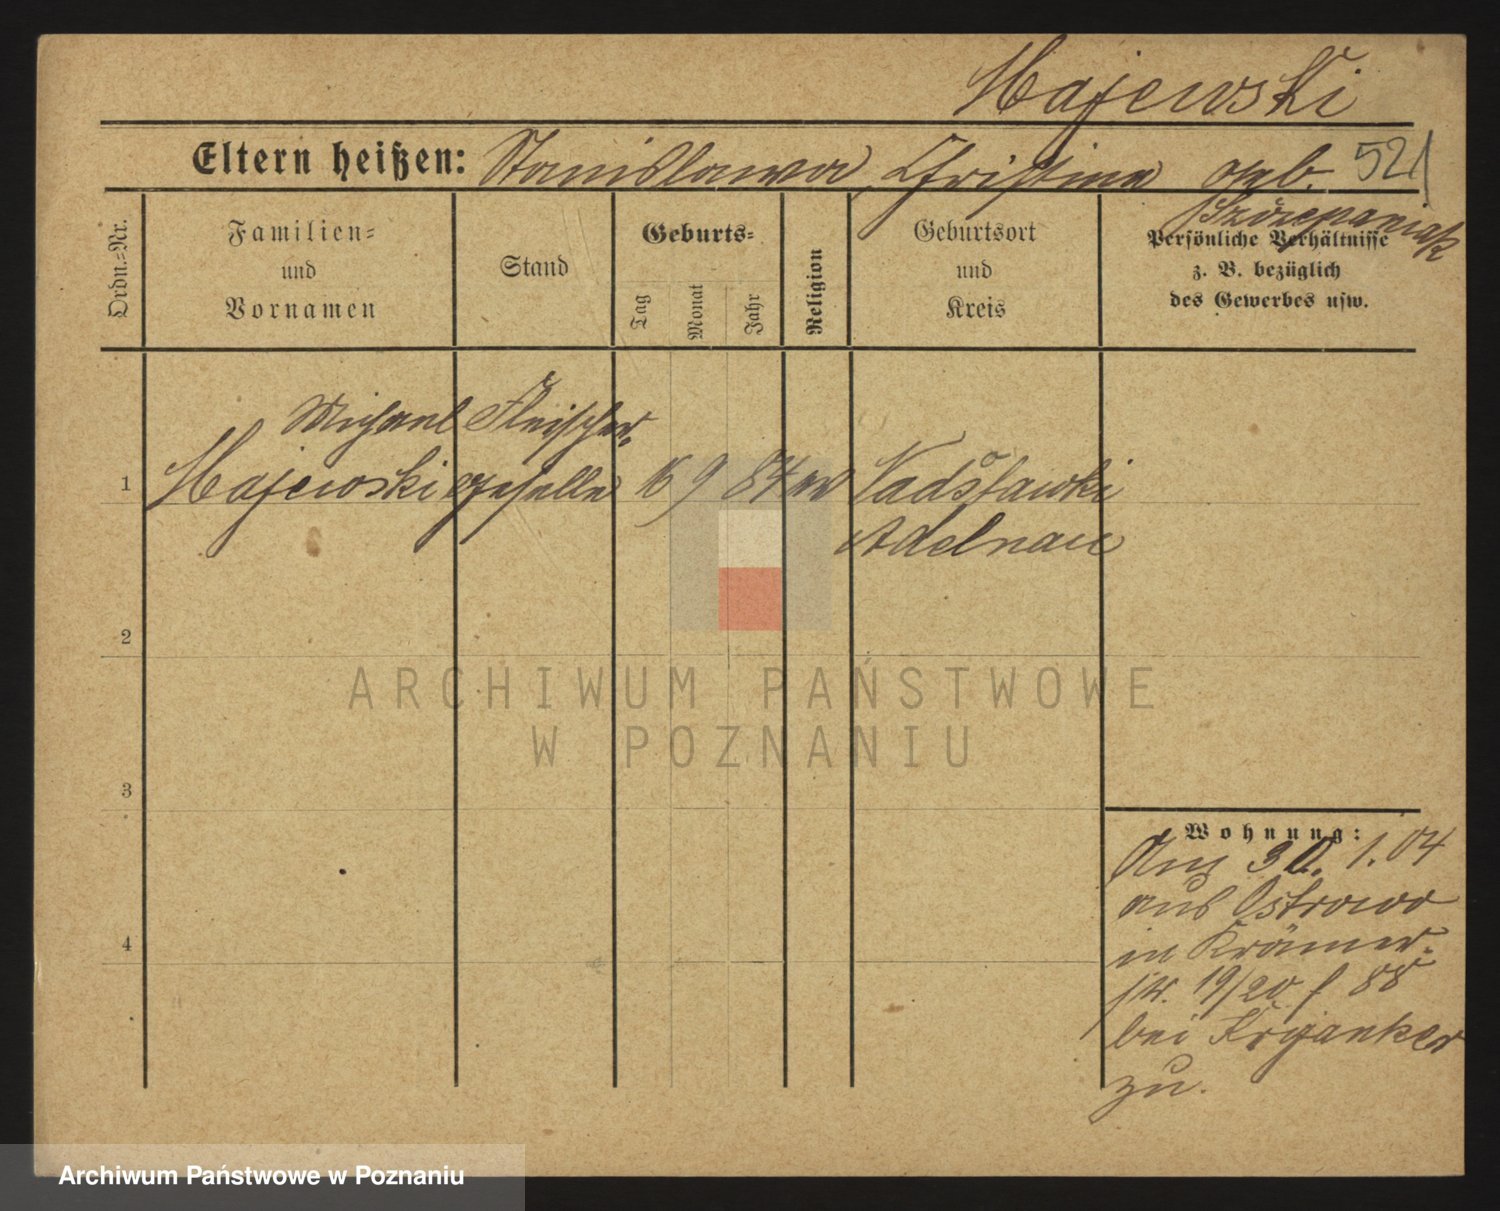 Majewski
Eltern heißen: Stanislawa Christina geb. 521
Szczepaniak
Ordn.-Nr.
Familien-
und
Vornamen
Stand
Geburts-
Tag
Monat
Jahr
Religion
Geburtsort
und
Kreis
Persönliche Verhältnisse
z. B. bezüglich
des Gewerbes usw.
Michael Fleischer-
1 Majewski geselle 16 9 84
Adelnau
2
ARCHIWUM PAŃSTWOWE
W POZNANIU
3
Wohnung:
Am 30. 1. 04
aus Ostrowo
in Krämer-
str. 19/20 f 88
bei
zu.
4
Archiwum Państwowe w Poznaniu